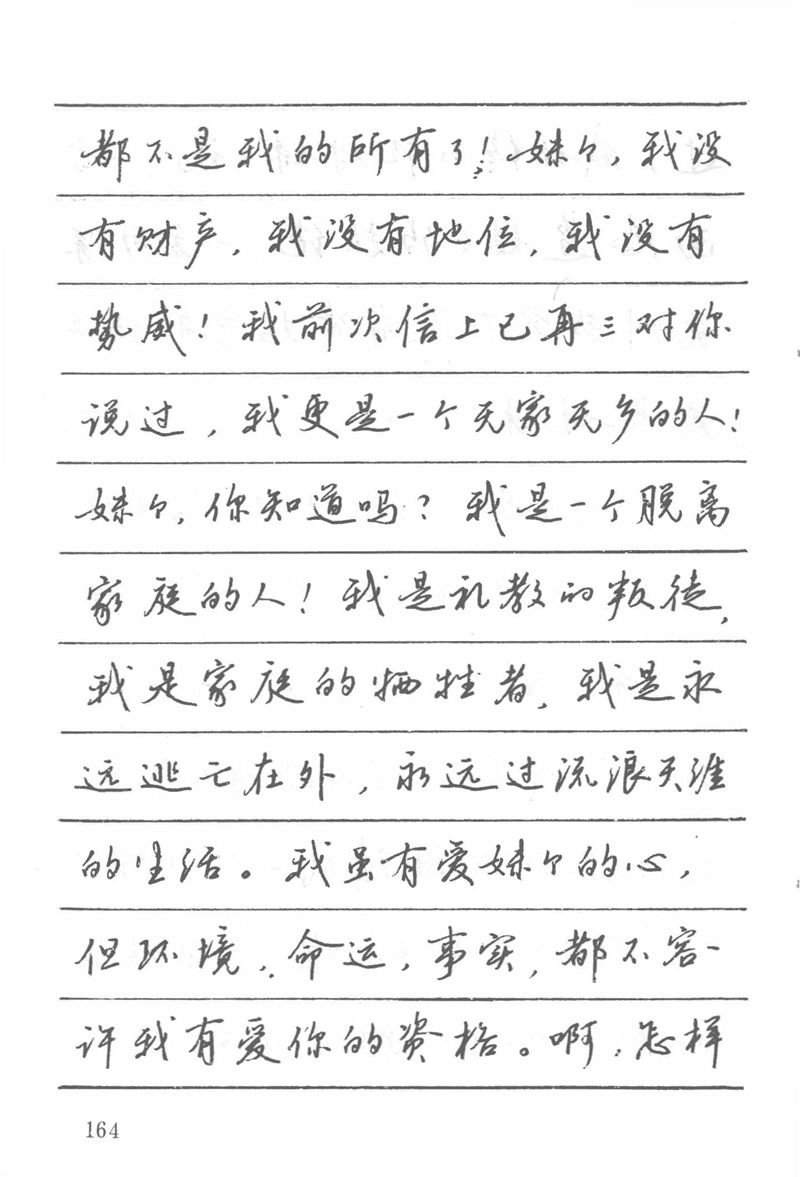 都不是我的所有了！妹々，我没
有财产，我没有地位，我没有
势威！我前次信上已再三对你
说过，我更是一个无家无乡的人！
妹々，你知道吗？我是一个脱离
家庭的人！我是礼教的叛徒，
我是家庭的牺牲者，我是永
远逃亡在外，永远过流浪天涯
的生活。我虽有爱妹々的心，
但环境，命运，事实，都不容
许我有爱你的资格。啊，怎样
164